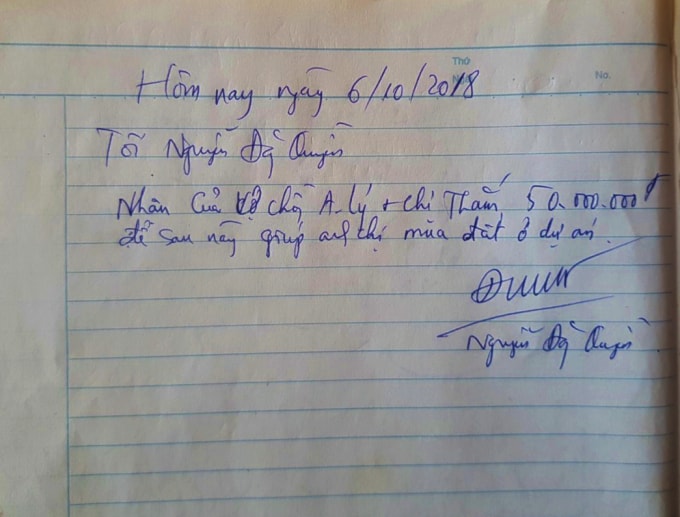 Thứ
No.
Hôm nay ngày 6/10/2018
Tôi Nguyễn Quyền
Nhận Của vợ chồng A. Lý + chị Thắm 50.000.000đ
để sau này giúp anh chị mua đất ở dự án.
Nguyễn Quyền